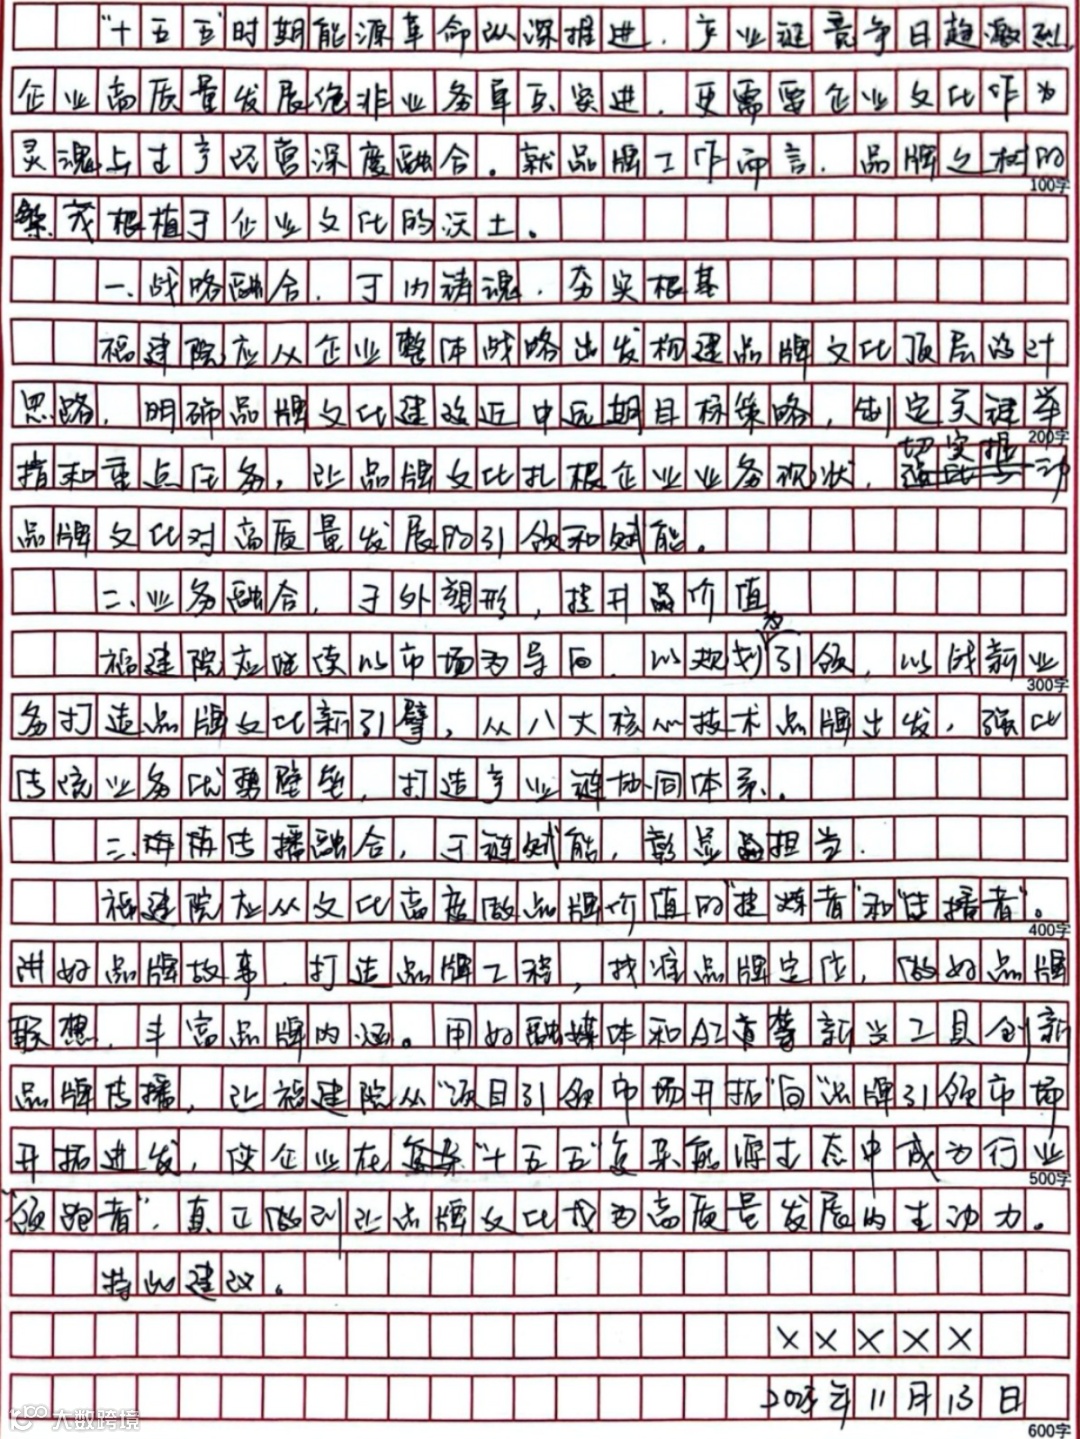 “十五五”时期能源革命纵深推进，产业链竞争日趋激烈，
企业高质量发展绝非业务单兵突进，更需要企业文化作为
灵魂与生产经营深度融合。就品牌工作而言，品牌之树的
100字
繁茂根植于企业文化的沃土。
一、战略融合，于内铸魂，夯实根基
福建院应从企业整体战略出发构建品牌文化顶层设计
思路，明确品牌文化建设近中远期目标策略，制定关键举
200字
措和重点任务，让品牌文化扎根企业业务现状，切实推动
品牌文化对高质量发展的引领和赋能。
二、业务融合，于外塑形，提升品价值
福建院应继续以市场为导向，以规划为引领，以战新业
300字
务打造品牌文化新引擎，从八大核心技术品牌出发，强化
传统业务优势壁垒，打造产业链协同体系。
三、传播融合，于链赋能，彰显担当.
福建院应从文化高度做品牌价值的“提炼者”和“传播者”。
400字
讲好品牌故事，打造品牌工程，找准品牌定位，做好品牌
联想，丰富品牌内涵。用好融媒体和AI等新兴工具创新
品牌传播，让福建院从“项目引领市场开拓”向“品牌引领市场
开拓”进发，使企业在“十五五”复杂能源生态中成为行业
500字
“领跑者”，真正做到让品牌文化成为高质量发展的主动力。
特此建议。
×××××
2025年11月13日
600字
大数跨境